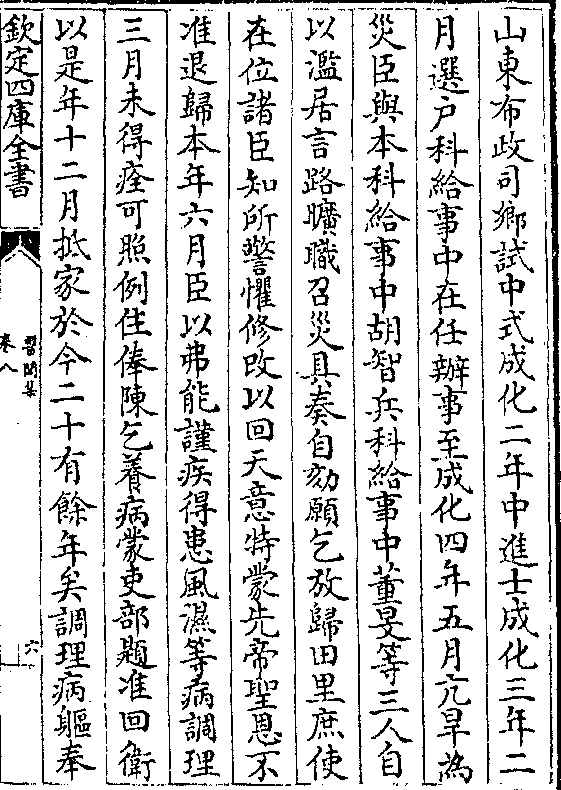 山東布政司鄉試中式成化二年中進士成化三年二
月選户科給事中在任辦事至成化四年五月亢旱為
災臣與本科給事中胡智兵科給事中董旻等三人自
以濫居言路曠職召災具奏自劾願乞放歸田里庶使
在位諸臣知所警懼修改以回天意特蒙先帝聖恩不
准退歸本年六月臣以弗能謹疾得患風濕等病調理
三月未得痊可照例住俸陳乞養病蒙吏部題准回衛
以是年十二月抵家於今二十有餘年矣調理病軀奉
欽定四庫全書
醫閭集
卷八
六